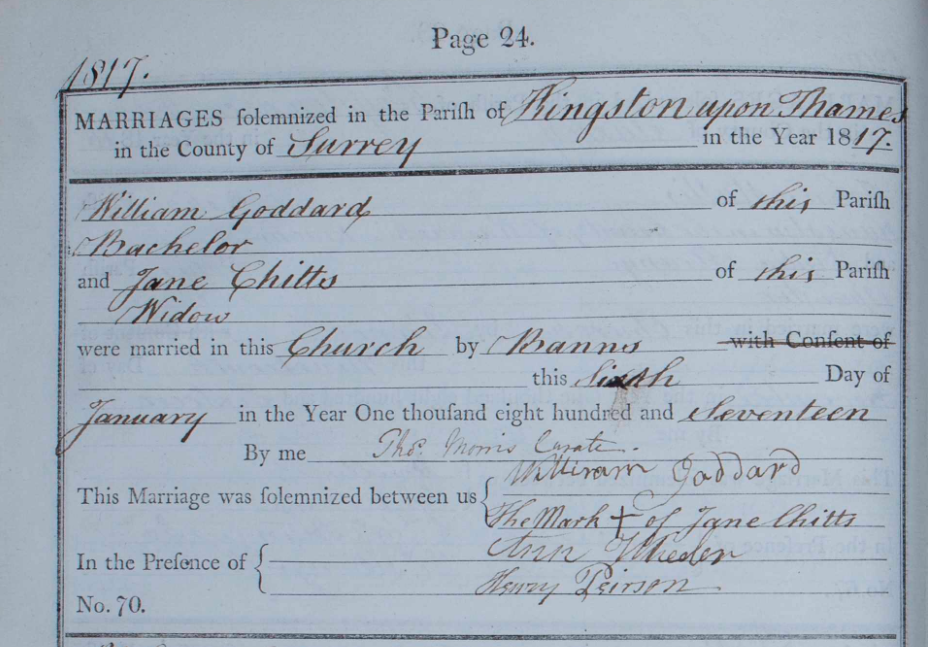 Page 24.
1817.
MARRIAGES solemnized in the Parish of Kingston upon Thames
in the County of Surrey in the Year 1817.
William Goddard of this Parish
Bachelor
and Jane Chitts of this Parish
Widow
were married in this Church by Banns with Consent of
this Sixth Day of
January in the Year One thousand eight hundred and Seventeen
By me Thos. Morris Curate.
This Marriage was solemnized between us { William Goddard
The Mark + of Jane Chitts
In the Presence of { Ann Wheden
Henry Peirson
No. 70.